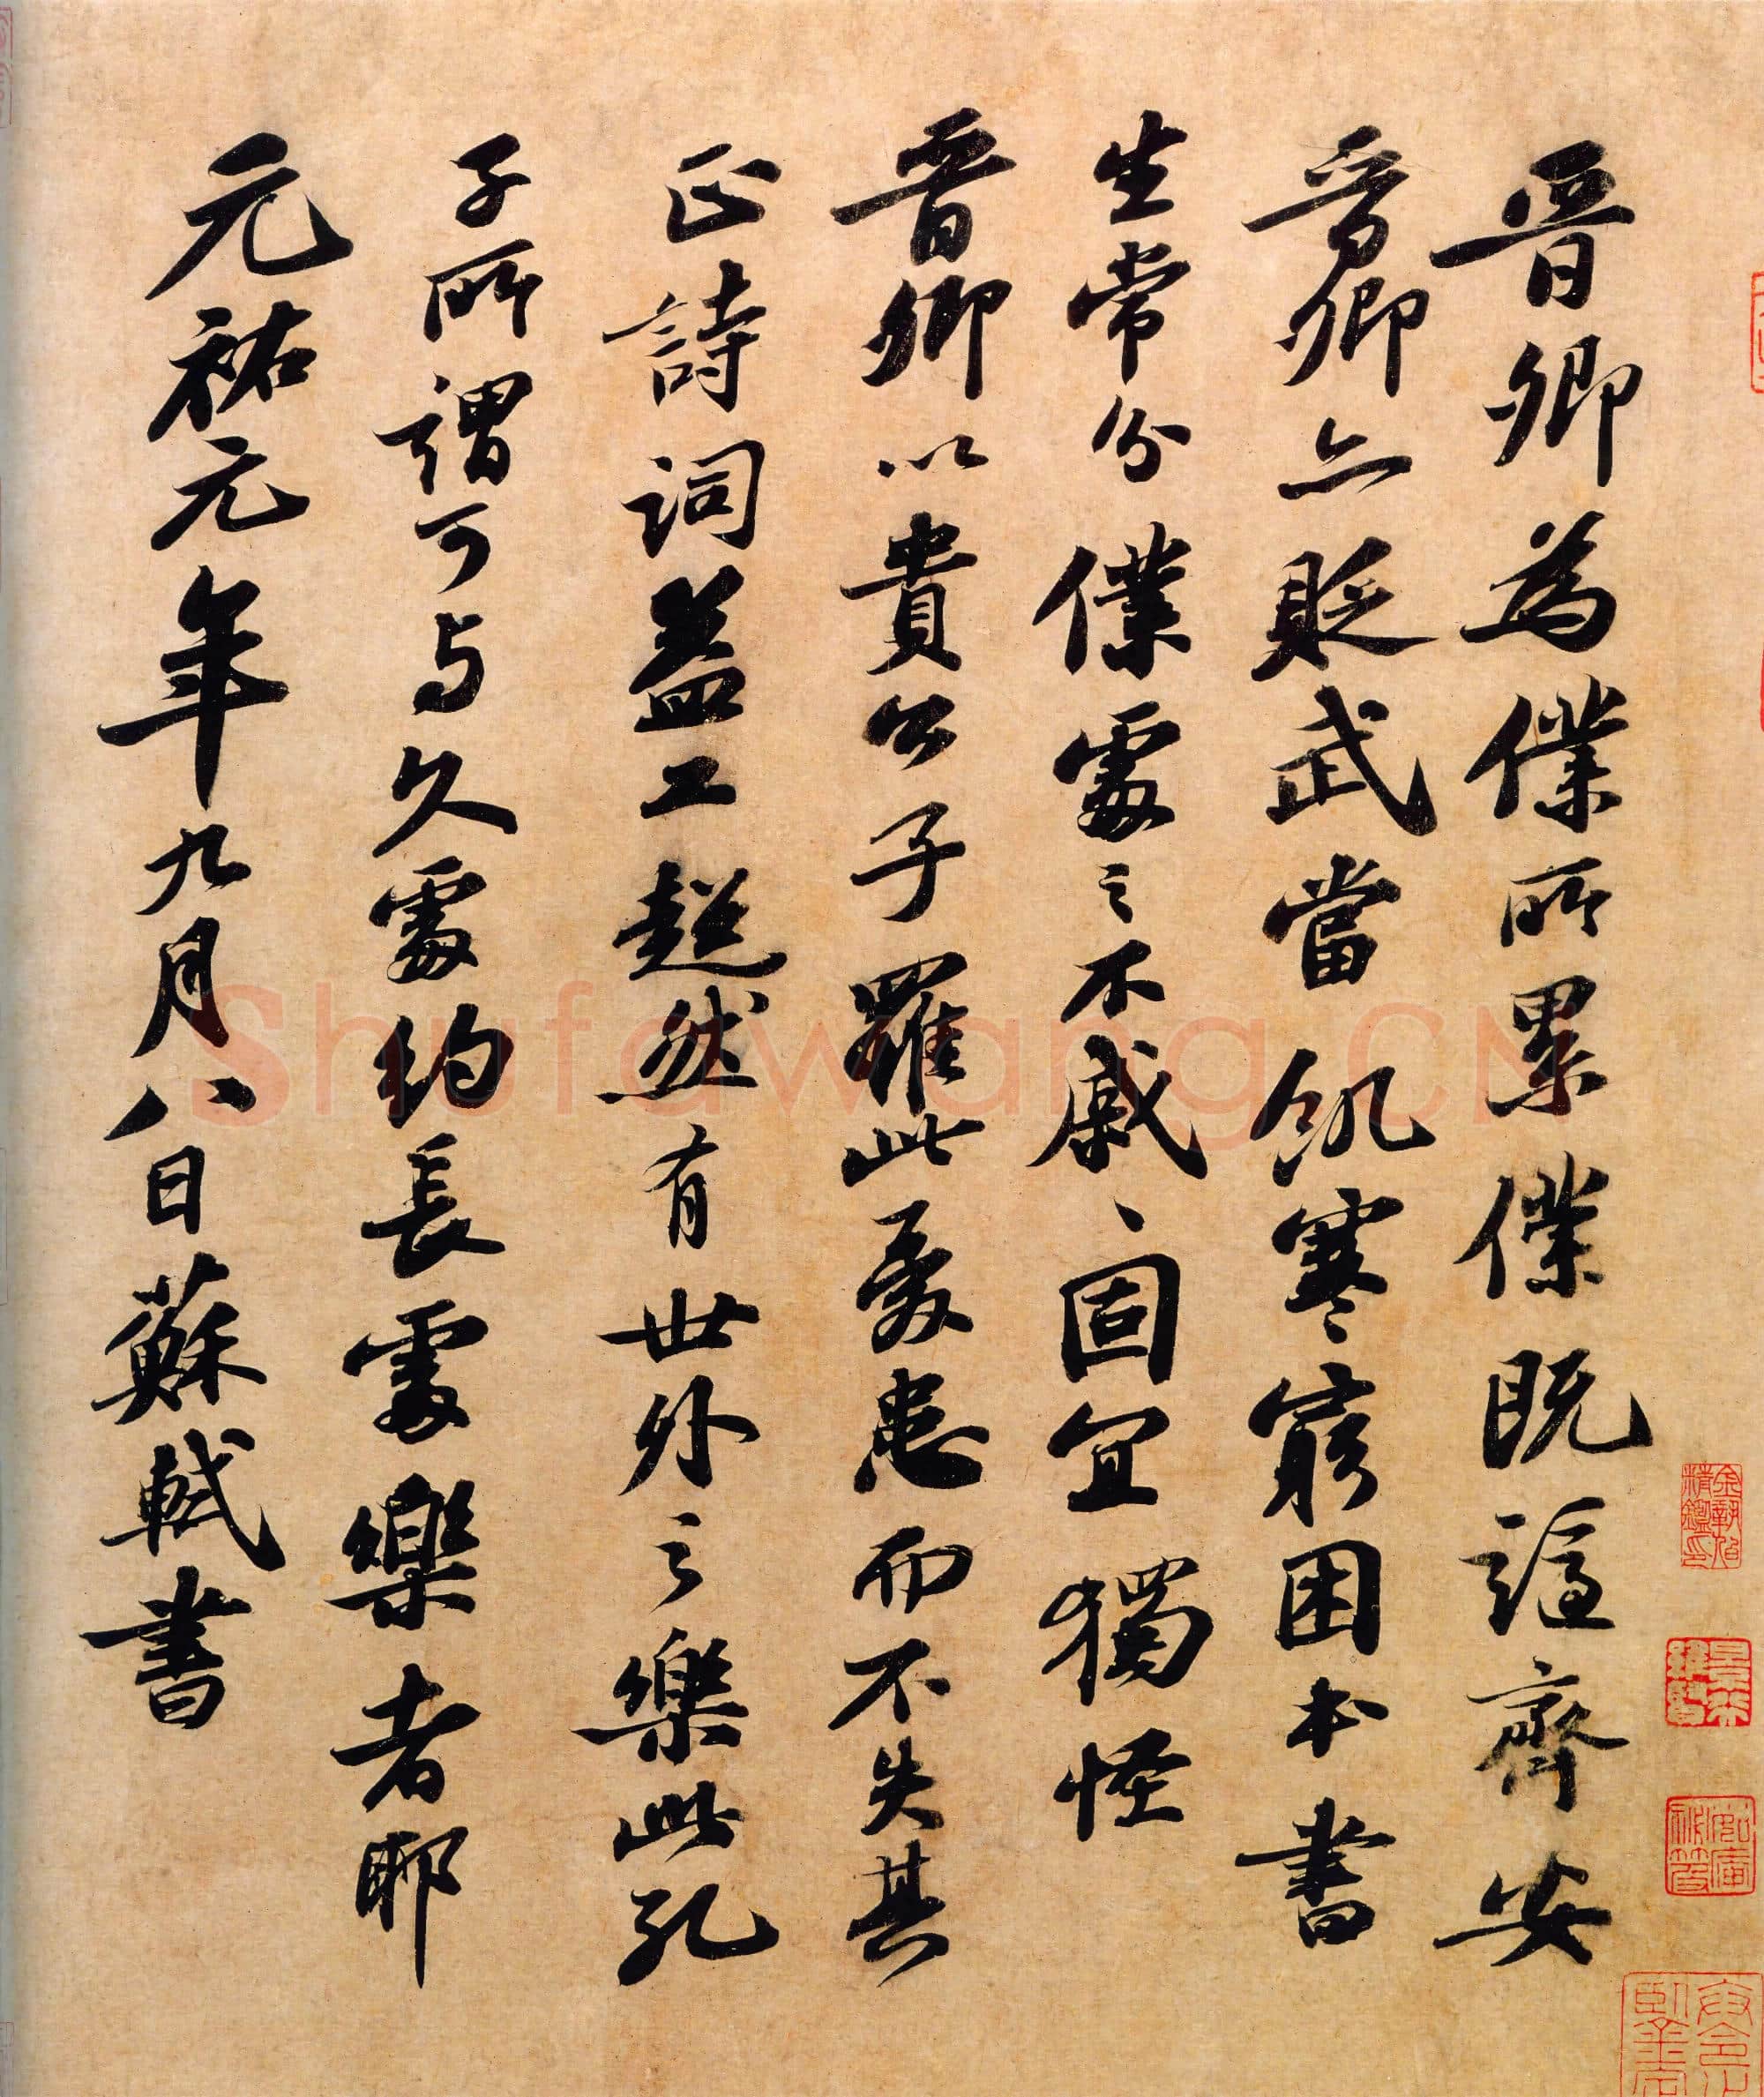 晉卿為僕所累僕既謫齊安
晉卿亦貶武當飢寒窮困本書
生常分僕處之不戚、固宜獨怪
晉卿以貴公子罹此憂患而不失其
正詩詞益工超然有世外之樂此孔
子所謂可与久處約長處樂者耶
元祐元年九月八日蘇軾書
Shufawang.CN